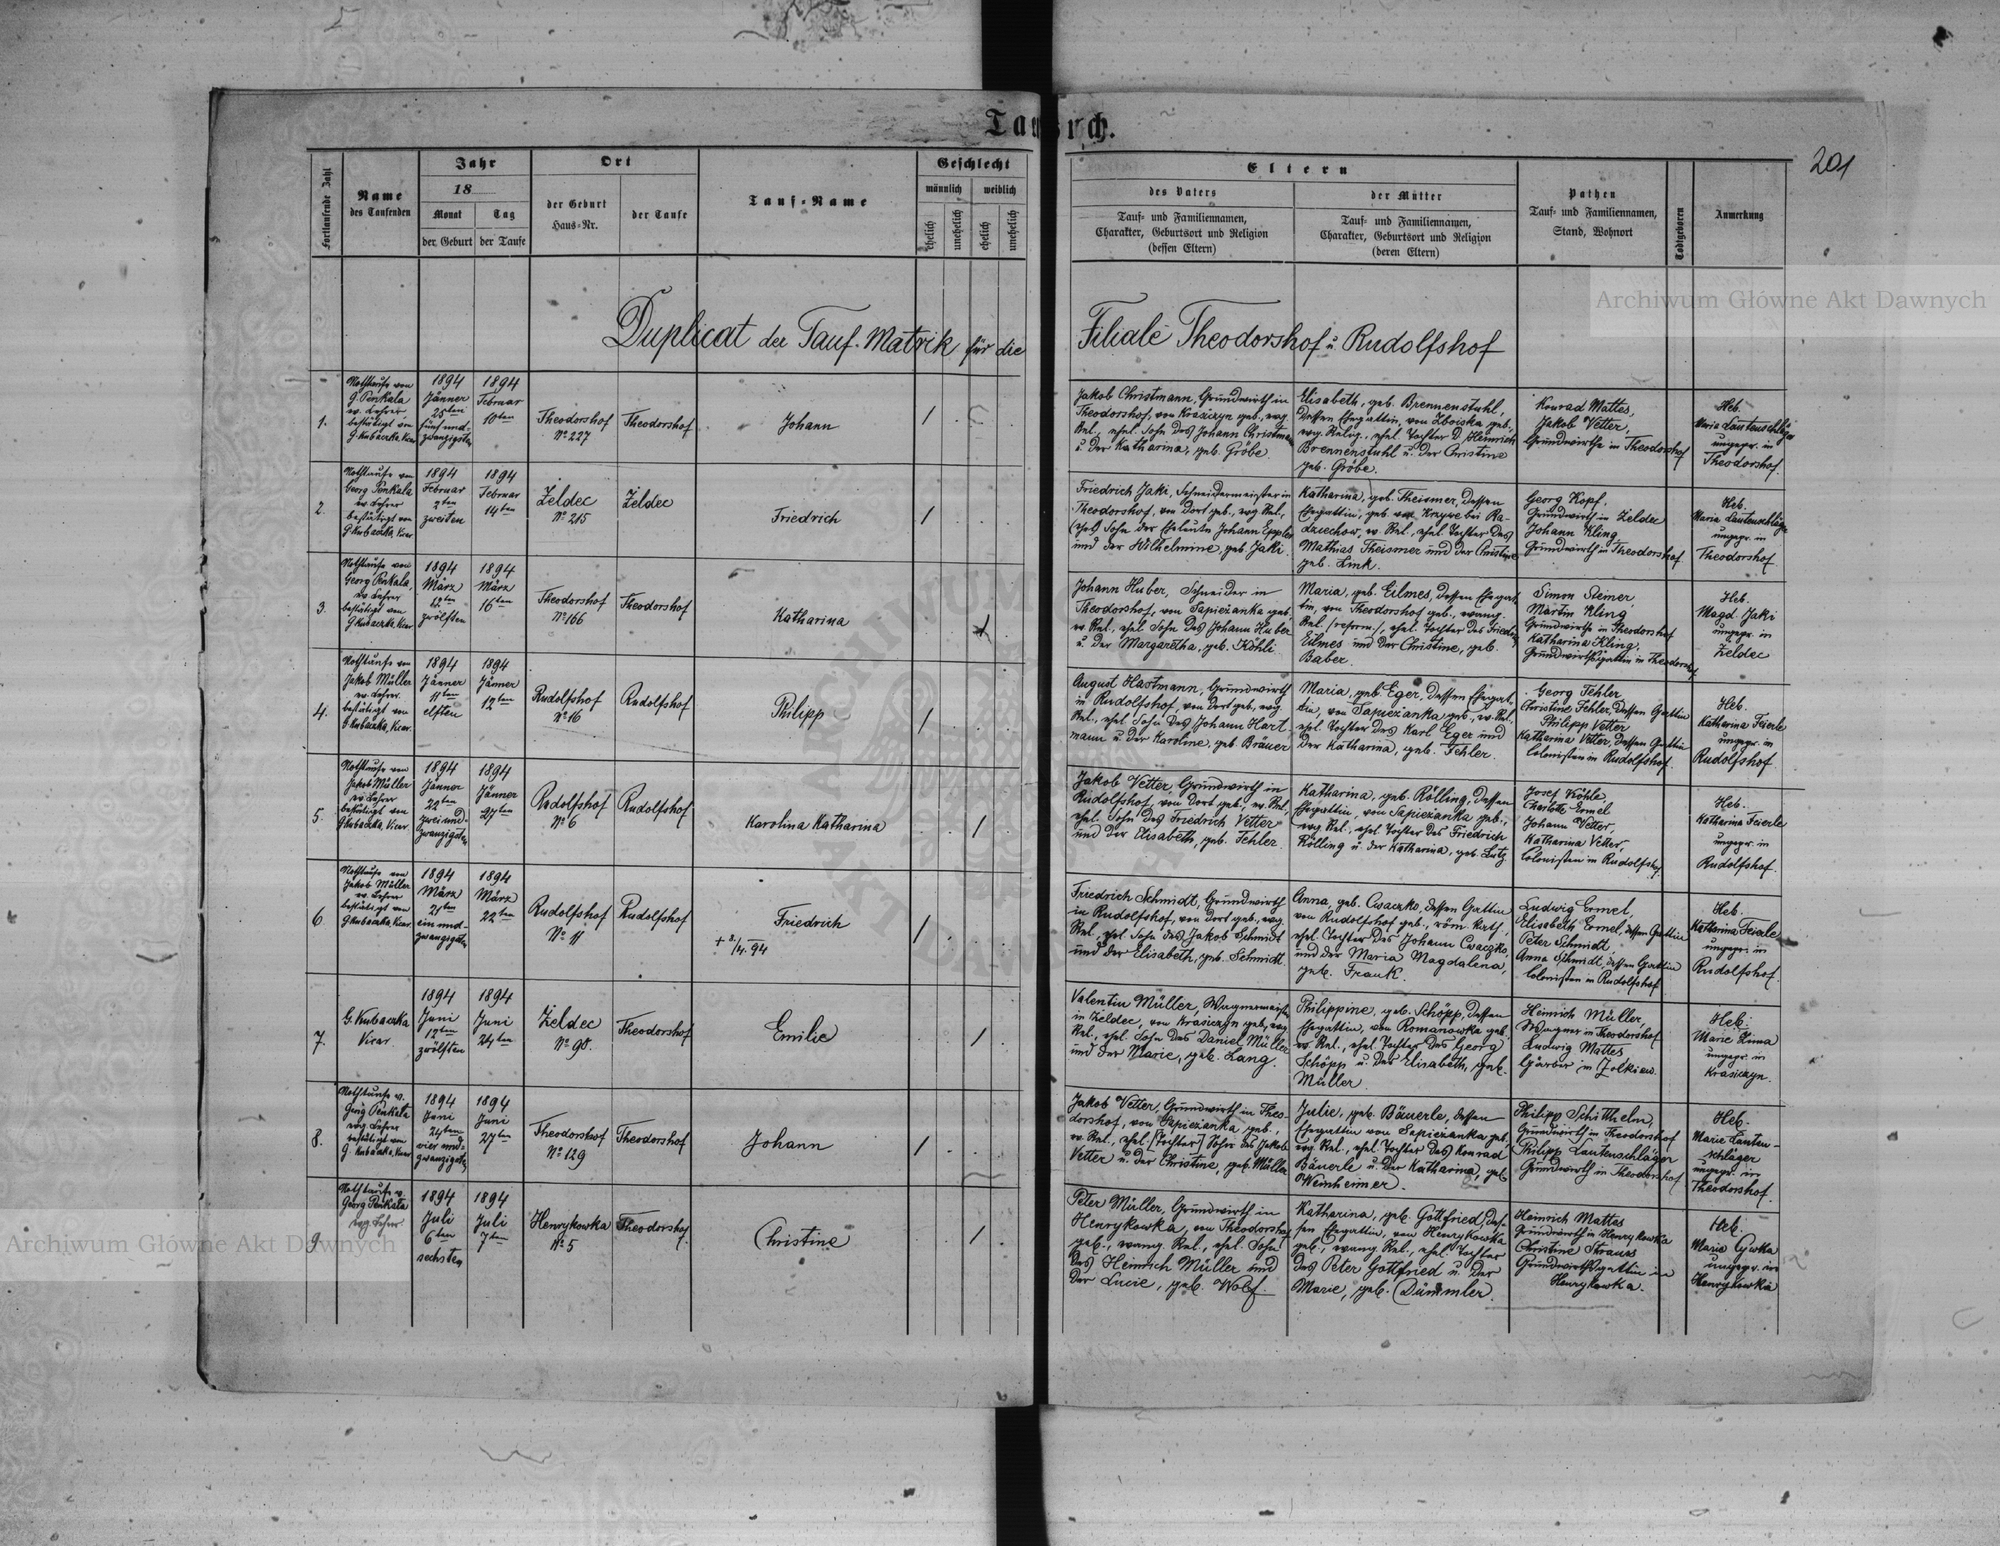 Taufbuch.
201
Fortlaufende Zahl
Name
des Taufenden
Jahr
18
Monat
Tag
der Geburt
der Taufe
Ort
der Geburt
Haus-Nr.
der Taufe
Tauf-Name
Geschlecht
männlich
weiblich
ehelich
unehelich
ehelich
unehelich
Eltern
des Vaters
Tauf- und Familiennamen,
Charakter, Geburtsort und Religion
(dessen Eltern)
der Mutter
Tauf- und Familiennamen,
Charakter, Geburtsort und Religion
(deren Eltern)
Pathen
Tauf- und Familiennamen,
Stand, Wohnort
Todtgeboren
Anmerkung
Archiwum Główne Akt Dawnych
Duplicat der Tauf-Matrik für die Filiale Theodorshof u. Rudolfshof
1.
Nothtaufe von
G. Penkala
ev. Lehrer
bestätigt von
G. Kubaczka, Vicar
1894
Jänner
25ten
fünf und-
zwanzigsten
1894
Februar
10ten
Theodorshof
No 227
Theodorshof
Johann
1
Jakob Christmann, Grundwirth in
Theodorshof, von Krasiczyn geb., evg.
Rel., ehel. Sohn des Johann Christmann
u. der Katharina, geb. Gröbe.
Elisabeth, geb. Brennenstuhl,
dessen Ehegattin, von Zboiska geb.,
evg. Relig., ehel. Tochter d. Heinrich
Brennenstuhl u. der Christine
geb. Gröbe.
Konrad Mattes,
Jakob Vetter,
Grundwirthe in Theodorshof
Heb.
Maria Lautenschläger
ungepr. in
Theodorshof.
2.
Nothtaufe von
Georg Penkala
ev. Lehrer
bestätigt von
G. Kubaczka, Vicar
1894
Februar
2ten
zweiten
1894
Februar
14ten
Żeldec
No 215
Żeldec
Friedrich
1
Friedrich Jaki, Schneidermeister in
Theodorshof, von dort geb., evg Rel.,
(ehel) Sohn der Eheleute Johann Eppler
und der Wilhelmine, geb. Jaki.
Katharina, geb. Theismer, dessen
Ehegattin, geb. von Krzywe bei Ra-
dziechow, ev. Rel., ehel. Tochter des
Mathias Theismer und der Christine
geb. Link.
Georg Kopf.
Grundwirth in Zeldec
Johann Kling
Grundwirth in Theodorshof
Heb.
Maria Lautenschläger
ungepr. in
Theodorshof
3.
Nothtaufe von
Georg Penkala,
ev. Lehrer
bestätigt von
G. Kubaczka, Vicar
1894
März
12ten
zwölften
1894
März
16ten
Theodorshof
No 166
Theodorshof
Katharina
1
Johann Huber, Schneider in
Theodorshof, von Sapieżanka geb.,
ev. Rel., ehel. Sohn des Johann Huber
u. der Margaretha, geb. Köhli.
Maria, geb. Eilmes, dessen Ehegat-
tin, von Theodorshof geb., evang.
Rel. /reform./, ehel. Tochter des Friedr.
Eilmes und der Christine, geb.
Baber.
Simon Steiner,
Martin Kling
Grundwirthe in Theodorshof
Katharina Kling,
Grundwirthsgattin in Theodorshof
Heb.
Magd. Jaki
ungepr. in
Żeldec
4.
Nothtaufe von
Jakob Müller
ev. Lehrer.
bestätigt von
G. Kubaczka, Vicar.
1894
Jänner
11ten
elften
1894
Jänner
12ten
Rudolfshof
No 16
Rudolfshof
Philipp
1
August Hartmann, Grundwirth
in Rudolfshof, von dort geb., evg.
Rel., ehel. Sohn des Johann Hart-
mann u. der Karoline, geb. Bräuer
Maria, geb. Eger, dessen Ehegat-
tin, von Sapieżanka geb., ev. Rel.
ehel. Tochter des Karl Eger und
der Katharina, geb. Fehler.
Georg Fehler
Christine Fehler, dessen Gattin
Philipp Vetter
Katharina Vetter, dessen Gattin
Colonisten in Rudolfshof.
Heb.
Katharina Feierle
ungepr. in
Rudolfshof
5.
Nothtaufe von
Jakob Müller
ev. Lehrer
bestätigt von
G. Kubaczka, Vicar.
1894
Jänner
22ten
zwei und-
zwanzigsten
1894
Jänner
27ten
Rudolfshof
No 6
Rudolfshof
Karolina Katharina
1
Jakob Vetter, Grundwirth in
Rudolfshof, von dort geb., ev. Rel.,
ehel. Sohn des Friedrich Vetter
und der Elisabeth, geb. Fehler.
Katharina, geb. Rölling, dessen
Ehegattin, von Sapieżanka geb.,
evg Rel., ehel. Tochter des Friedrich
Rölling u. der Katharina, geb. Lutz
Josef Köhle,
Charlotte Ermel
Johann Vetter,
Katharina Vetter,
Colonisten in Rudolfshof.
Heb.
Katharina Feierle
ungepr. in
Rudolfshof.
6.
Nothtaufe von
Jakob Müller
ev. Lehrer
bestätigt von
G. Kubaczka, Vicar.
1894
März
21ten
ein und-
zwanzigsten
1894
März
22ten
Rudolfshof
No 11
Rudolfshof
Friedrich
+ 8./4. 94
1
Friedrich Schmidt, Grundwirth
in Rudolfshof, von dort geb., evg.
Rel., ehel. Sohn des Jakob Schmidt
und der Elisabeth, geb. Schmidt.
Anna, geb. Cwaczko, dessen Gattin
von Rudolfshof geb., röm. kath.,
ehel. Tochter des Johann Cwaczko,
und der Maria Magdalena,
geb. Frank.
Ludwig Ermel,
Elisabeth Ermel, dessen Gattin
Peter Schmidt,
Anna Schmidt, dessen Gattin
Colonisten in Rudolfshof
Heb.
Katharina Feierle
ungepr. in
Rudolfshof.
7.
G. Kubaczka
Vicar.
1894
Juni
12ten
zwölften
1894
Juni
24ten
Żeldec
No 90.
Theodorshof
Emilie
1
Valentin Müller, Wagnermeister
in Żeldec, von Krasiczyn geb., evg
Rel., ehel. Sohn des Daniel Müller
und der Marie, geb. Lang.
Philippine, geb. Schöpp, dessen
Ehegattin, von Romanowka geb.
ev Rel., ehel. Tochter des Georg
Schöpp u. der Elisabeth, geb.
Müller.
Heinrich Müller,
Wagner in Theodorshof
Ludwig Mattes
Gärber in Zolkiew.
Heb.
Marie Zima
ungepr. in
Krasiczyn.
8.
Nothtaufe v.
Georg Penkala
evg. Lehrer
bestätigt von
G. Kubaczka, Vicar
1894
Juni
24ten
vier und-
zwanzigsten
1894
Juni
27ten
Theodorshof
No 129
Theodorshof
Johann
1
Jakob Vetter, Grundwirth in Theo-
dorshof, von Sapieżanka geb.,
ev. Rel., ehel. [Tochter] Sohn des Jakob
Vetter u. der Christine, geb. Müller
Julie, geb. Bäuerle, dessen
Ehegattin von Sapieżanka geb.
evg Rel., ehel. Tochter des Konrad
Bäuerle u. der Katharina, geb.
Weinheimer.
Philipp Schitthelm,
Grundwirth in Theodorshof
Philipp Lautenschläger
Grundwirth in Theodorshof
Heb.
Marie Lauten-
schläger
ungepr. in
Theodorshof.
9.
Nothtaufe v.
Georg Penkala
evg. Lehrer
1894
Juli
6ten
sechsten
1894
Juli
7ten
Henrykowka
No 5
Theodorshof.
Christine
1
Peter Müller, Grundwirth in
Henrykowka, von Theodorshof
geb., evang. Rel., ehel. Sohn
des Heinrich Müller und
der Lucie, geb. Wolf.
Katharina, geb. Gottfried, des-
sen Ehegattin, von Henrykowka
geb., evang. Rel., ehel. Tochter
des Peter Gottfried u. der
Marie, geb. Dümmler.
Heinrich Mattes
Grundwirth in Henrykowka
Christine Strauss
Grundwirthsgattin in
Henrykowka.
Heb.
Marie Cywka
ungepr. in
Henrykowka
Archiwum Główne Akt Dawnych